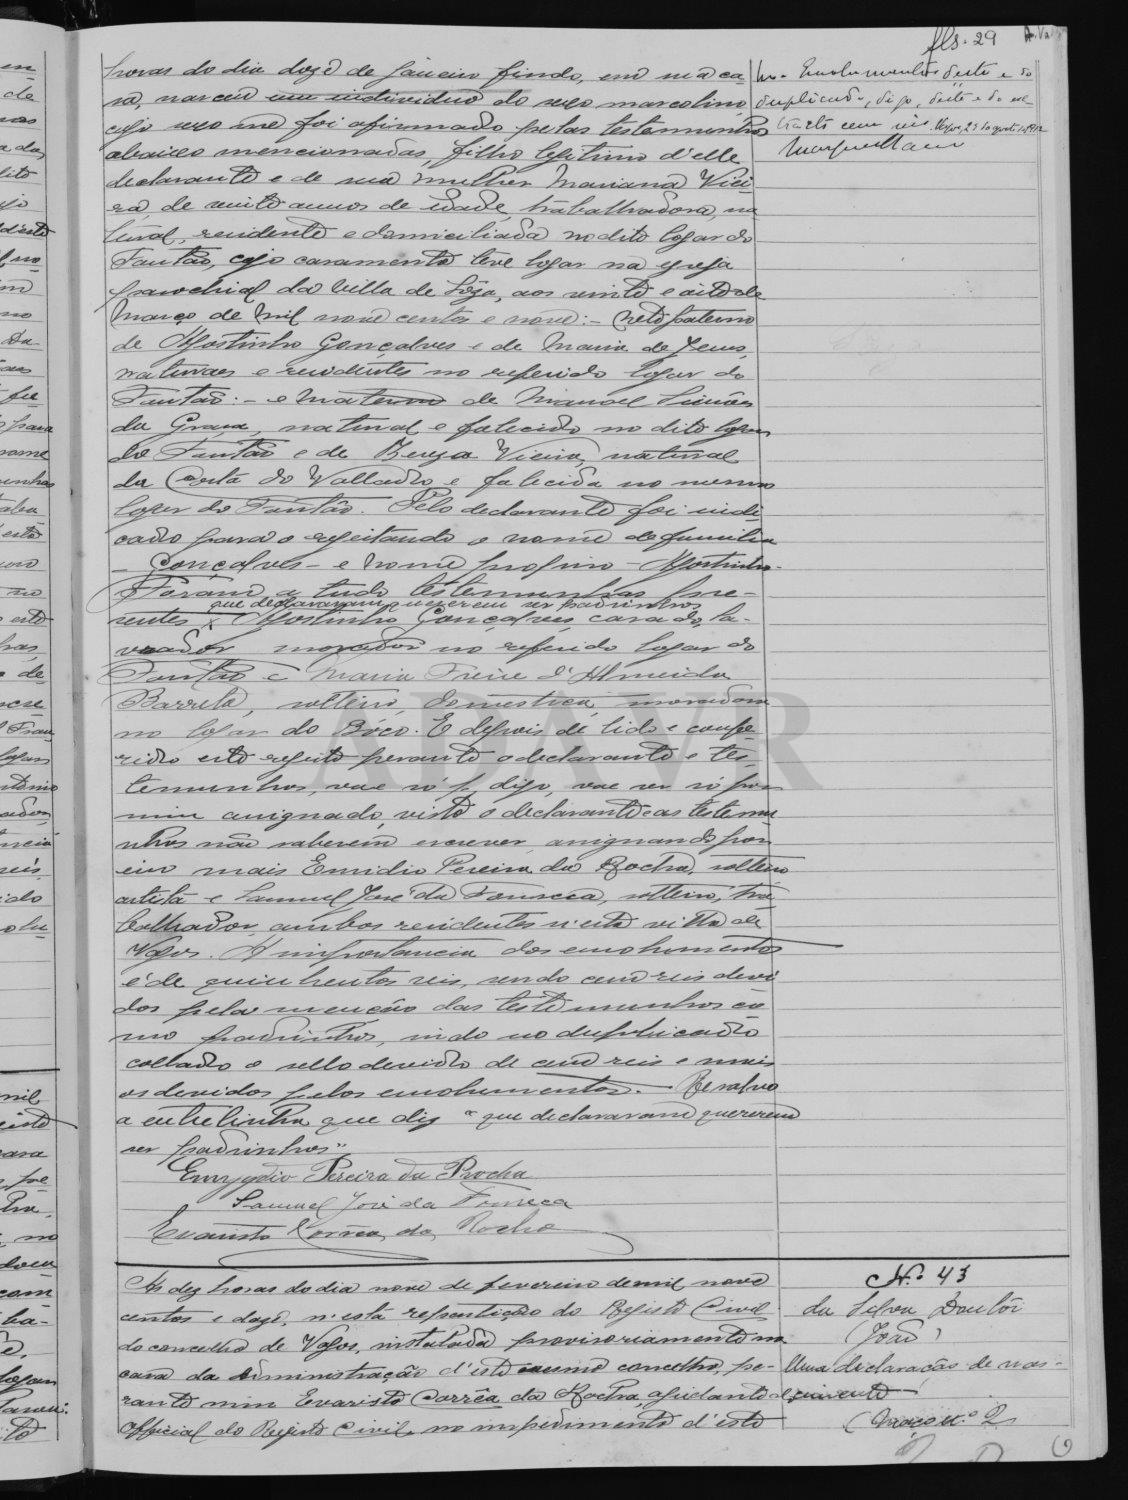 fls. 29
horas do dia doze de Janeiro findo, em sua ca-
sa, nasceu um individuo do sexo masculino,
cujo sexo me foi afirmado pelas testemunhas
abaixo mencionadas, filho legitimo d'elle
declarante e de sua mulher Mariana Viei-
ra, de vinte annos de edade, trabalhadora, na
tural, residente e domiciliada no dito logar do
Fontão, cujo casamento teve logar na egreja
parochial da Villa de Sôza, aos vinte e oito de
Março de mil nove centos e nove: - Neto paterno
de Agostinho Gonçalves e de Maria de Jesus,
naturaes e residentes no referido logar do
Fontão: - e materno de Manoel Simões
da Graça, natural e falecido no dito logar
do Fontão e de Roza Vieira, natural
da Costa do Vallado e falecida no mesmo
logar do Fontão. Pelo declarante foi indi-
cado para o registando o nome de familia
- Gonçalves - e nome proprio - Agostinho -
Foram a tudo testemunhas pre-
que declararam quererem ser padrinhos
sentes Agostinho Gonçalves, casado, la-
vrador morador no referido logar do
Fontão e Maria Freire d'Almeida
Barreto, solteira, domestica, moradora
no logar do Bóco. E depois de lido e confe-
rido este registo perante o declarante e tes-
temunhas, vae só p, digo, vae ser só por
mim assignado, visto o declarante e as testemu
nhas não saberem escrever, assignando por
eles mais Emidio Pereira da Rocha, solteiro
artista e Samuel José da Fonseca, solteiro, tra-
balhador, ambos residentes n'esta villa de
Vagos. A importancia dos emolumentos
é de quinhentos reis, sendo cem reis devi
dos pela menção das testemunhas co
mo padrinhos, indo no duplicado
collado o sello devido de cem reis e mais
os devidos pelos emolumentos. Resalvo
a entrelinha que diz "que declararam quererem
ser padrinhos"
Emygdio Pereira da Rocha
Samuel José da Fonseca
Evaristo Corrêa da Rocha
Emolumentos d'este e do
duplicado, digo, d'este e do ex-
tracto cem reis. Vagos, 23 d'agosto 1912
As dez horas do dia nove de fevereiro de mil nove
centos e doze, n'esta repartição do Registo Civil
do concelho de Vagos, installada provisoriamente na
casa da Administração d'este mesmo concelho, pe-
rante mim Evaristo Corrêa da Rocha, ajudante do
official do Registo Civil, no impedimento d'este
Nº 43
(João)
Uma declaração de nas-
cimento
(Maço nº 2
ADAVR